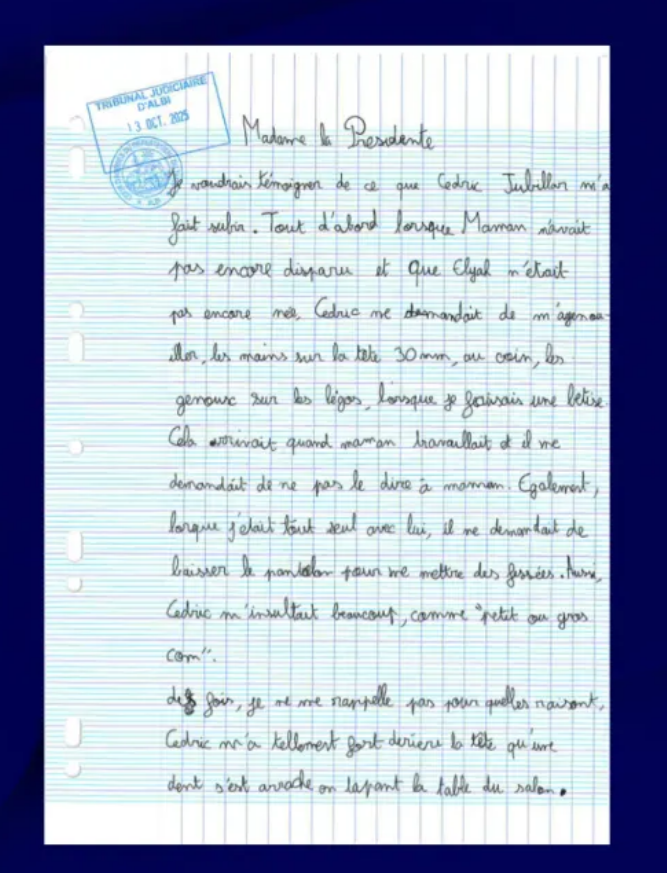 TRIBUNAL JUDICIAIRE
D'ALBI
13 OCT. 2025
Madame la Presidente
Je voudrais témoigner de ce que Cedric Jubillar m'a
fait subir. Tout d'abord lorsque Maman n'avait
pas encore disparu et que Elyah n'était
pas encore née, Cedric me demandait de m'agenou-
iller, les mains sur la tête 30 mm, au coin, les
genoux sur les légos, lorsque je faisais une betise.
Cela arrivait quand maman travaillait et il me
demandait de ne pas le dire à maman. Egalement,
lorque j'était tout seul avec lui, il me demandait de
baisser le pantalon pour me mettre des fessées. Aussi,
Cedric m'insultait beaucoup, comme "petit ou gros
con".
des fois, je ne me rappelle pas pour quelles raisont,
Cedric m'a tellement fort deriere la tête qu'une
dent s'est arraché en tapant la table du salon.